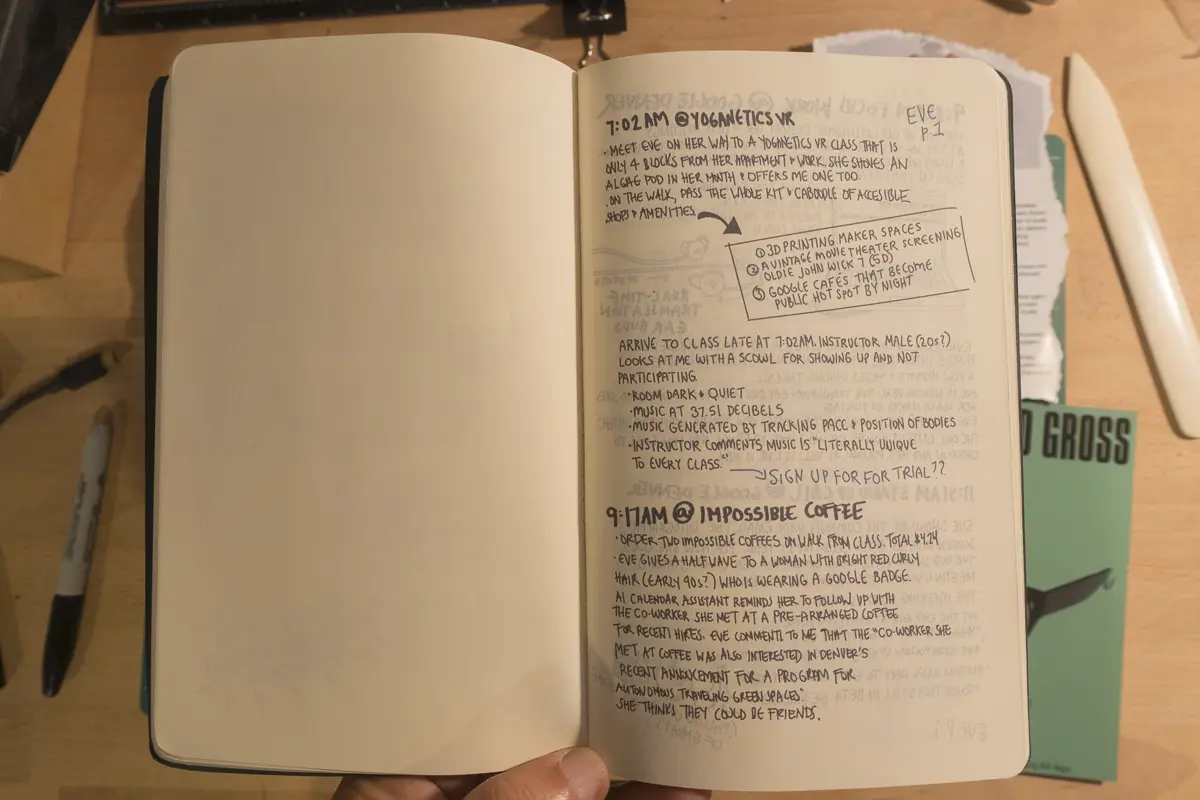 7:02 AM @ YOGANETICS VR
EVE
P.1
· MEET EVE ON HER WAY TO A YOGANETICS VR CLASS THAT IS
ONLY 4 BLOCKS FROM HER APARTMENT & WORK. SHE SHOVES AN
ALGAE POD IN HER MOUTH & OFFERS ME ONE TOO.
· ON THE WALK, PASS THE WHOLE KIT & CABOODLE OF ACCESIBLE
SHOPS & AMENITIES
① 3D PRINTING MAKER SPACES
② A VINTAGE MOVIE THEATER SCREENING
OLDIE JOHN WICK 7 (5D)
③ GOOGLE CAFÉS THAT BECOME
PUBLIC HOT SPOT BY NIGHT
ARRIVE TO CLASS LATE AT 7:02AM. INSTRUCTOR MALE (20s?)
LOOKS AT ME WITH A SCOWL FOR SHOWING UP AND NOT
PARTICIPATING.
· ROOM DARK & QUIET
· MUSIC AT 37.51 DECIBELS
· MUSIC GENERATED BY TRACKING PACE & POSITION OF BODIES
· INSTRUCTOR COMMENTS MUSIC IS "LITERALLY UNIQUE
TO EVERY CLASS."
SIGN UP FOR FOR TRIAL??
9:17AM @ IMPOSSIBLE COFFEE
· ORDER TWO IMPOSSIBLE COFFEES ON WALK FROM CLASS. TOTAL $4.24
· EVE GIVES A HALF WAVE TO A WOMAN WITH BRIGHT RED CURLY
HAIR (EARLY 40s?) WHO IS WEARING A GOOGLE BADGE.
AI CALENDAR ASSISTANT REMINDS HER TO FOLLOW UP WITH
THE CO-WORKER SHE MET AT A PRE-ARRANGED COFFEE
FOR RECENT HIRES. EVE COMMENTS TO ME THAT THE "CO-WORKER SHE
MET AT COFFEE WAS ALSO INTERESTED IN DENVER'S
RECENT ANNOUCEMENT FOR A PROGRAM FOR
AUTONOMOUS TRAVELING GREEN SPACES"
SHE THINKS THEY COULD BE FRIENDS.
GROSS